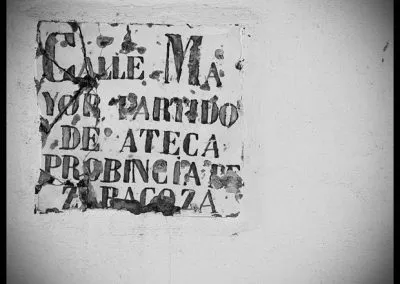 CALLE MA
YOR PARTIDO
DE ATECA
PROBINCIA DE
ZARAGOZA